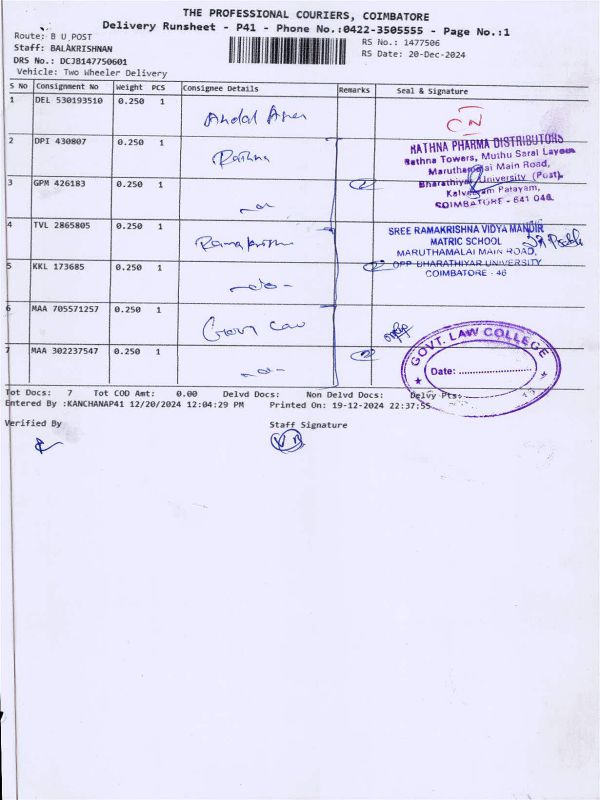 THE PROFESSIONAL COURIERS, COIMBATORE
Delivery Runsheet - P41 - Phone No.:0422-3505555 - Page No.:1
Route: B U POST
RS No.: 1477506
Staff: BALAKRISHNAN
RS Date: 20-Dec-2024
DRS No.: DCJB147750601
Vehicle: Two Wheeler Delivery
S No Consignment No Weight PCS Consignee Details Remarks Seal & Signature
1 DEL 530193510 0.250 1
CN
2 DPI 430807 0.250 1 Rathna
RATHNA PHARMA DISTRIBUTORS
Rathna Towers, Muthu Sarai Layout
Maruthamalai Main Road,
Bharathiyar University (Post),
3 GPM 426183 0.250 1
COIMBATORE - 641 046.
4 TVL 2865805 0.250 1 Ramakrishna
SREE RAMAKRISHNA VIDYA MANDIR
MATRIC SCHOOL
MARUTHAMALAI MAIN ROAD,
OPP BHARATHIYAR UNIVERSITY
COIMBATORE - 46
5 KKL 173685 0.250 1 -do-
6 MAA 705571257 0.250 1 Govn Law
GOVT. LAW COLLEGE
Date: ........................
7 MAA 302237547 0.250 1
Tot Docs: 7 Tot COD Amt: 0.00 Delvd Docs: Non Delvd Docs: Delvy Pts:
Entered By :KANCHANAP41 12/20/2024 12:04:29 PM Printed On: 19-12-2024 22:37:55
Verified By
Staff Signature